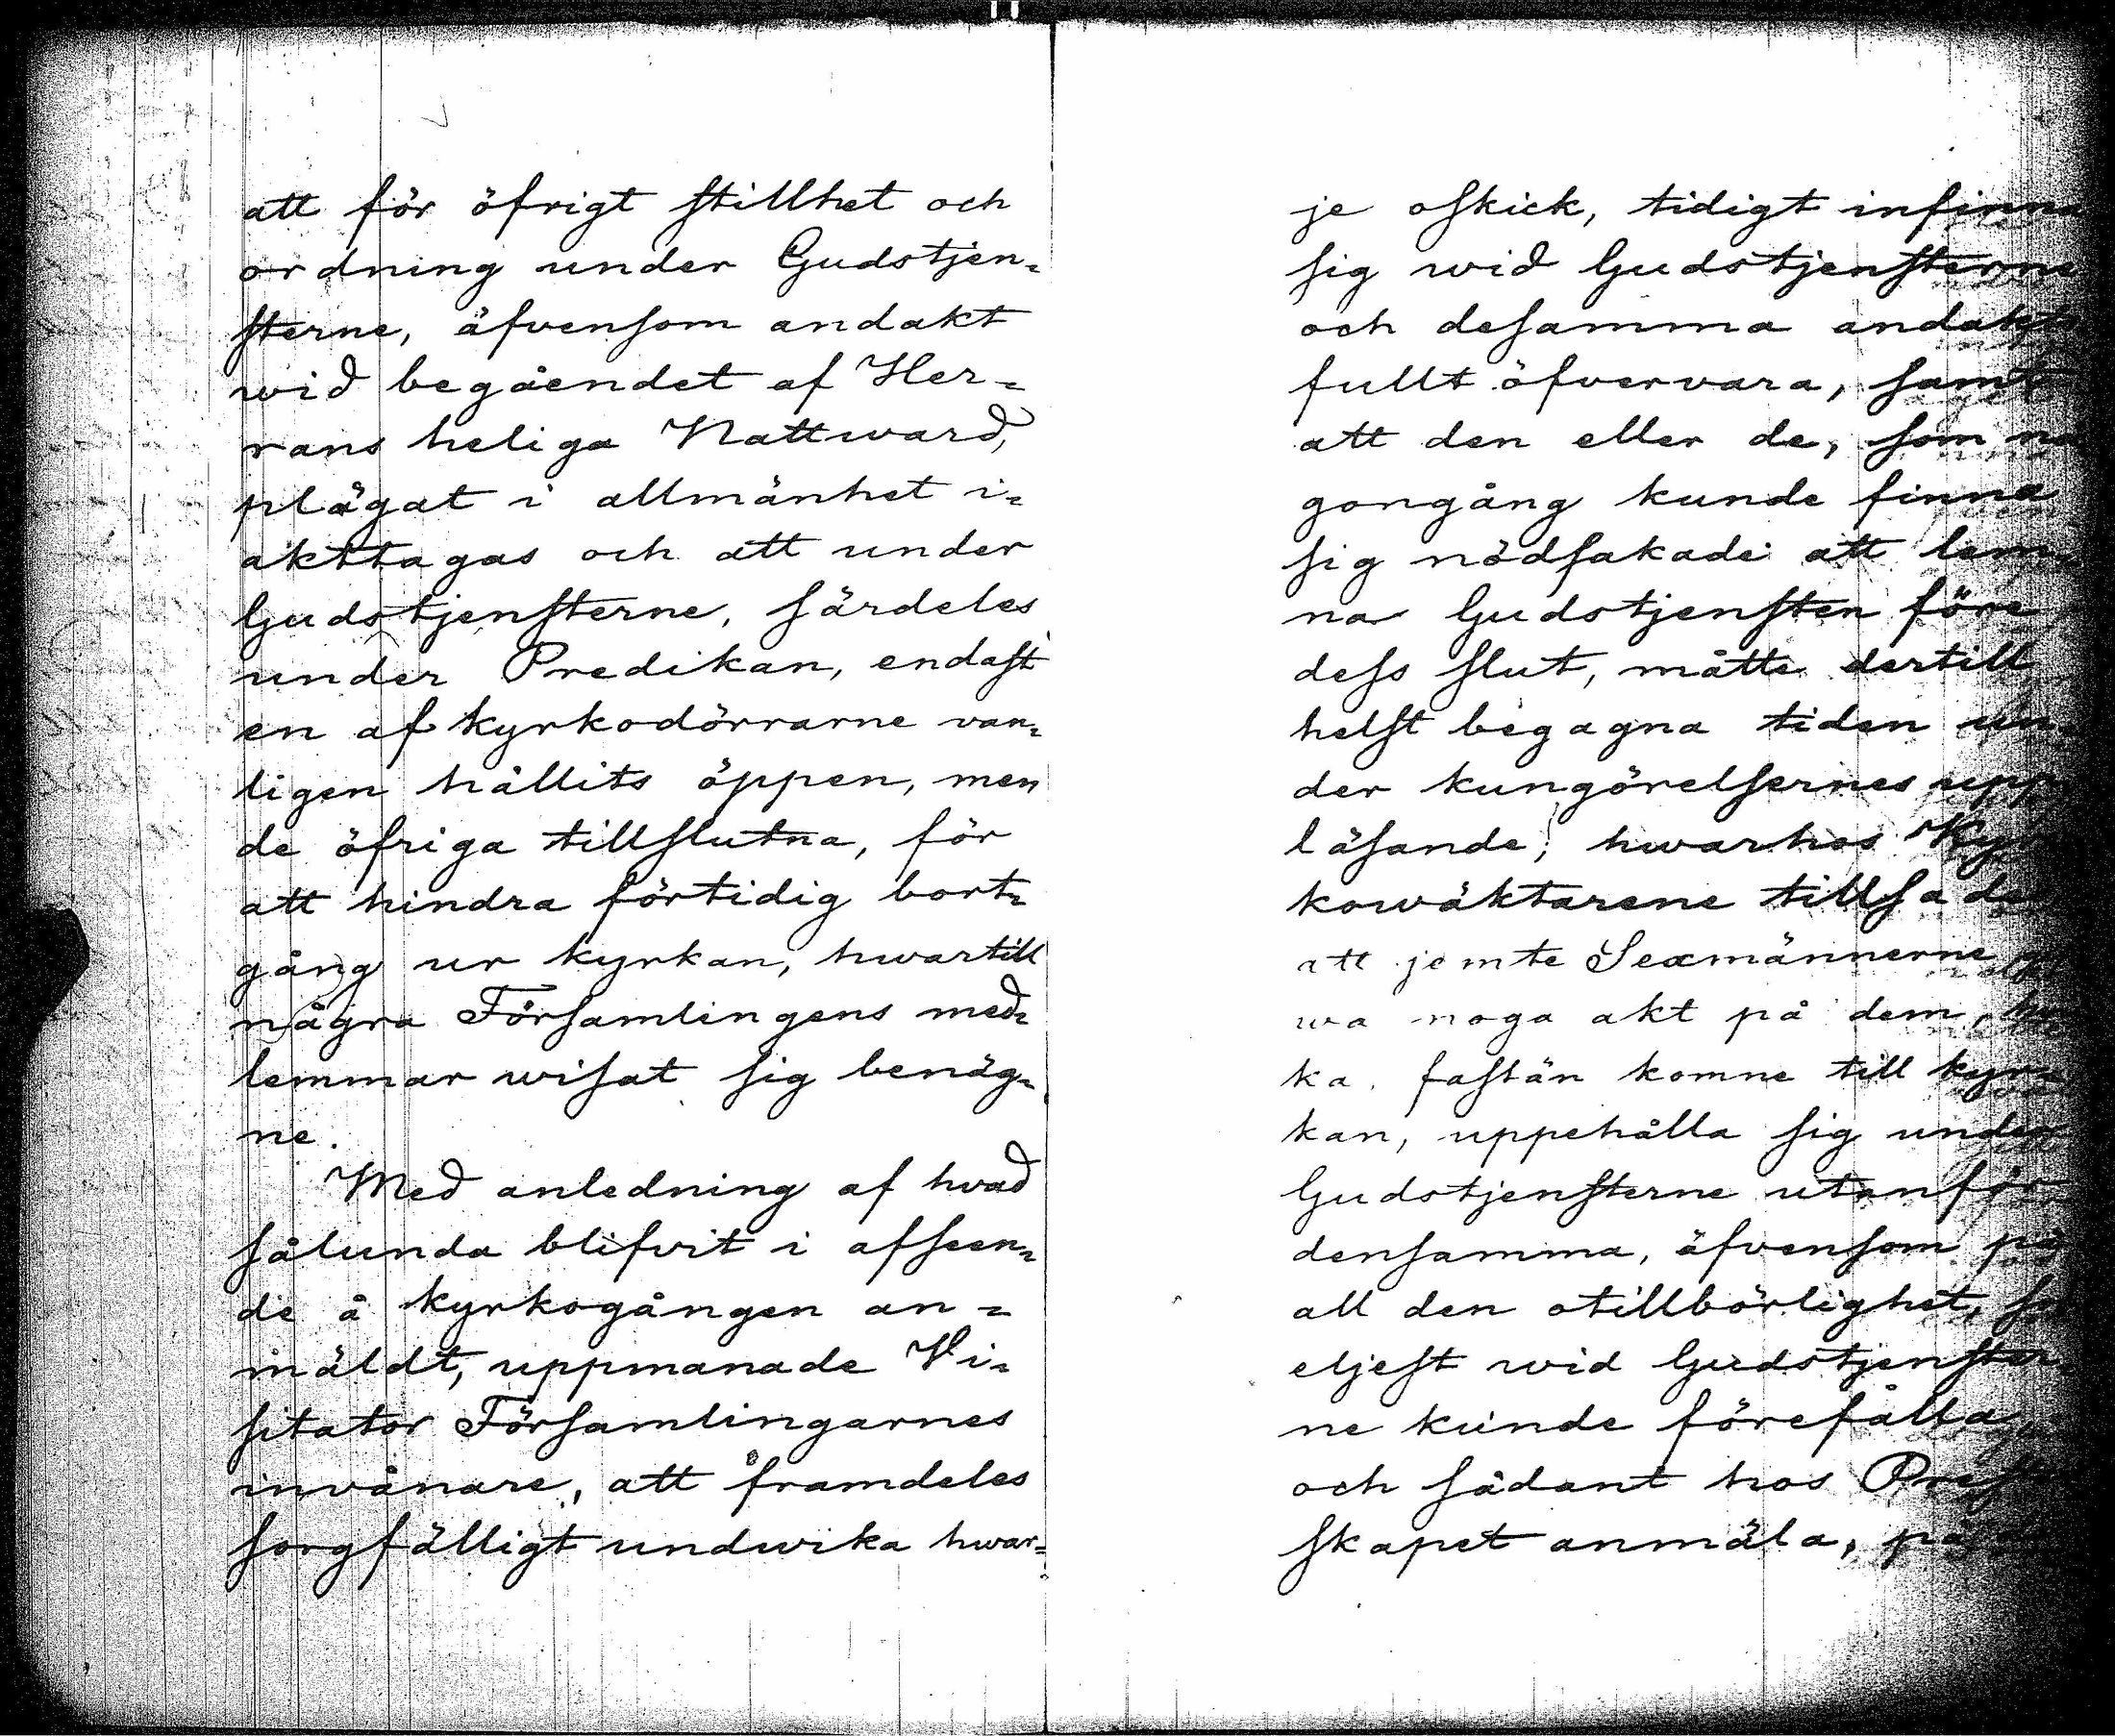 att för öfrigt stillhet och
ordning under Gudstjen=
sterne, äfvensom andakt
wid begåendet af Her=
rans heliga Nattward,
plägat i allmänhet i=
akttagas och att under
Gudstjensterne, särdeles
under Predikan, endast
en af kyrkodörrarne van=
ligen hållits öppen, men
de öfriga tillslutna, för
att hindra förtidig bort=
gång ur kyrkan, hwartill
några Församlingens med=
lemmar wisat sig benäg=
ne.
Med anledning af hvad
sålunda blifvit i afseen=
de å kyrkogången an=
mäldt, uppmanade Vi=
sitator Församlingarnes
invånare, att framdeles
sorgfälligt undwika hwar=
je oskick, tidigt infinna
sig wid Gudstjensterne
och desamma andakts
fullt öfvervara, samt
att den eller de, som nå
gongång kunde finna
sig nödsakade att lem=
na Gudstjensten före
dess slut, måtte dertill
helst begagna tiden un=
der kungörelsernes upp
läsande; hwarhos Kyr
kowäktarene tillsades
att jemte Sexmännerne
wa noga akt på dem,
ka, fastän komne till kyr=
kan, uppehålla sig under
Gudstjensterne utanför
densamma, äfvensom på
all den otillbörlighet,
eljest wid Gudstjenster=
ne kunde förefalla,
och sådant hos Prest
skapet anmäla, på